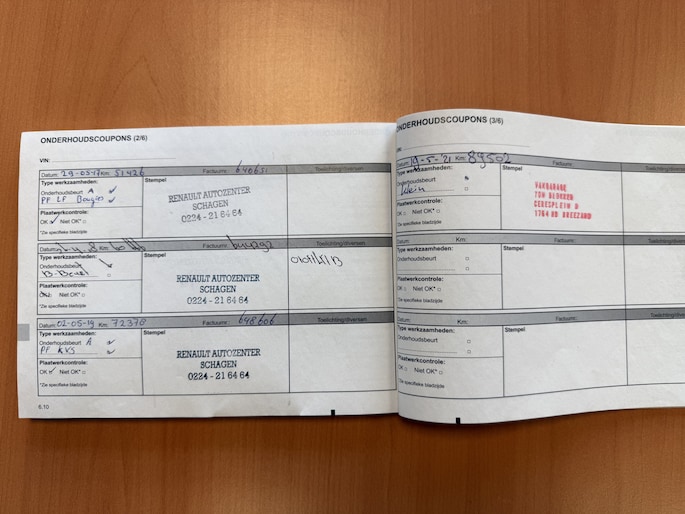 ONDERHOUDSCOUPONS (2/6)
VIN:
Datum: 29-05-17 Km: 51426 Factuurnr.: 640651 Toelichting/diversen
Type werkzaamheden: Stempel
Onderhoudsbeurt A
PF LF Bougies
Plaatwerkcontrole:
OK Niet OK*
*Zie specifieke bladzijde
RENAULT AUTOZENTER
SCHAGEN
0224 - 21 64 64
Datum: Km: Factuurnr.: Toelichting/diversen
Type werkzaamheden: Stempel
Onderhoudsbeurt
Plaatwerkcontrole:
OK Niet OK*
*Zie specifieke bladzijde
RENAULT AUTOZENTER
SCHAGEN
0224 - 21 64 64
Datum: 02-05-19 Km: 72378 Factuurnr.: 648606 Toelichting/diversen
Type werkzaamheden: Stempel
Onderhoudsbeurt A
PF KVS
Plaatwerkcontrole:
OK Niet OK*
*Zie specifieke bladzijde
RENAULT AUTOZENTER
SCHAGEN
0224 - 21 64 64
6.10
ONDERHOUDSCOUPONS (3/6)
VIN:
Datum: 19-5-'21 Km: 89502 Factuurnr.: Toelichting
Type werkzaamheden: Stempel
Onderhoudsbeurt
Klein
Plaatwerkcontrole:
OK Niet OK*
*Zie specifieke bladzijde
VAKGARAGE
TON BLOKKER
CERESPLEIN
1764 BREEZAND
Datum: Km: Factuurnr.: Toelichting
Type werkzaamheden: Stempel
Onderhoudsbeurt
Plaatwerkcontrole:
OK Niet OK*
*Zie specifieke bladzijde
Datum: Km: Factuurnr.: Toelichting
Type werkzaamheden: Stempel
Onderhoudsbeurt
Plaatwerkcontrole:
OK Niet OK*
*Zie specifieke bladzijde